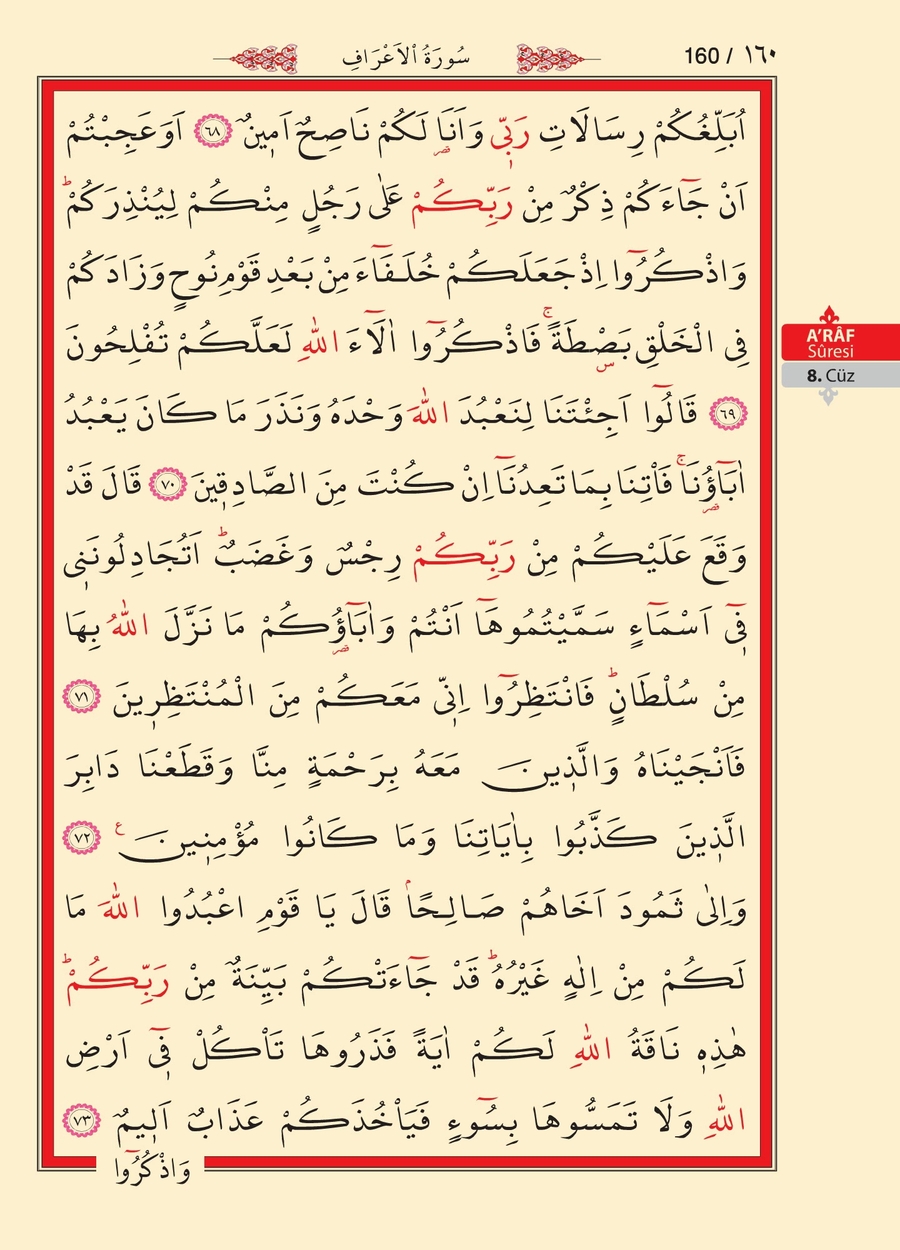 سُورَةُ الْاَعْرَافِ
160 / ١٦٠
اُبَلِّغُكُمْ رِسَالَاتِ رَبّٖي وَاَنَا۬ لَكُمْ نَاصِحٌ اَمٖينٌ ﴿٦٨﴾ اَوَعَجِبْتُمْ
اَنْ جَٓاءَكُمْ ذِكْرٌ مِنْ رَبِّكُمْ عَلٰى رَجُلٍ مِنْكُمْ لِيُنْذِرَكُمْؕ
وَاذْكُرُٓوا اِذْ جَعَلَكُمْ خُلَفَٓاءَ مِنْ بَعْدِ قَوْمِ نُوحٍ وَزَادَكُمْ
فِي الْخَلْقِ بَصْۣطَةًۚ فَاذْكُرُٓوا اٰلَٓاءَ اللّٰهِ لَعَلَّكُمْ تُفْلِحُونَ
﴿٦٩﴾ قَالُٓوا اَجِئْتَنَا لِنَعْبُدَ اللّٰهَ وَحْدَهُ وَنَذَرَ مَا كَانَ يَعْبُدُ
اٰبَٓاؤُ۬نَاۚ فَاْتِنَا بِمَا تَعِدُنَٓا اِنْ كُنْتَ مِنَ الصَّادِقٖينَ ﴿٧٠﴾ قَالَ قَدْ
وَقَعَ عَلَيْكُمْ مِنْ رَبِّكُمْ رِجْسٌ وَغَضَبٌؕ اَتُجَادِلُونَنٖي
فٖٓي اَسْمَٓاءٍ سَمَّيْتُمُوهَٓا اَنْتُمْ وَاٰبَٓاؤُ۬كُمْ مَا نَزَّلَ اللّٰهُ بِهَا
مِنْ سُلْطَانٍؕ فَانْتَظِرُٓوا اِنّٖي مَعَكُمْ مِنَ الْمُنْتَظِرٖينَ ﴿٧١﴾
فَاَنْجَيْنَاهُ وَالَّذٖينَ مَعَهُ بِرَحْمَةٍ مِنَّا وَقَطَعْنَا دَابِرَ
الَّذٖينَ كَذَّبُوا بِاٰيَاتِنَا وَمَا كَانُوا مُؤْمِنٖينَ ع ﴿٧٢﴾
وَاِلٰى ثَمُودَ اَخَاهُمْ صَالِحًاۘ قَالَ يَا قَوْمِ اعْبُدُوا اللّٰهَ مَا
لَكُمْ مِنْ اِلٰهٍ غَيْرُهُؕ قَدْ جَٓاءَتْكُمْ بَيِّنَةٌ مِنْ رَبِّكُمْؕ
هٰذِهٖ نَاقَةُ اللّٰهِ لَكُمْ اٰيَةً فَذَرُوهَا تَاْكُلْ فٖٓي اَرْضِ
اللّٰهِ وَلَا تَمَسُّوهَا بِسُٓوءٍ فَيَاْخُذَكُمْ عَذَابٌ اَلٖيمٌ ﴿٧٣﴾
وَاذْكُرُٓوا
A'RÂF
Sûresi
8. Cüz